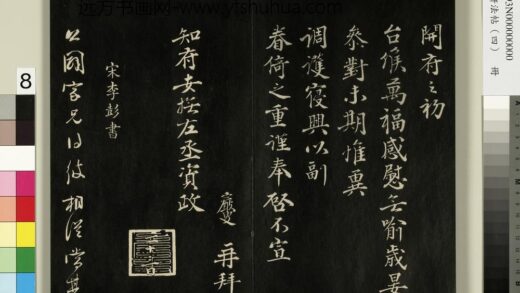 開府之初
台候萬福感慰無喻歲晏
參對未期惟冀
調護寢興以副
眷倚之重謹奉啓不宣
慶 再拜
知府安撫左丞資政
宋李彭書
國寶兄得彼相從
远方书画网 www.ytshuhua.com
書法帖（四） 冊
93N000000000
8